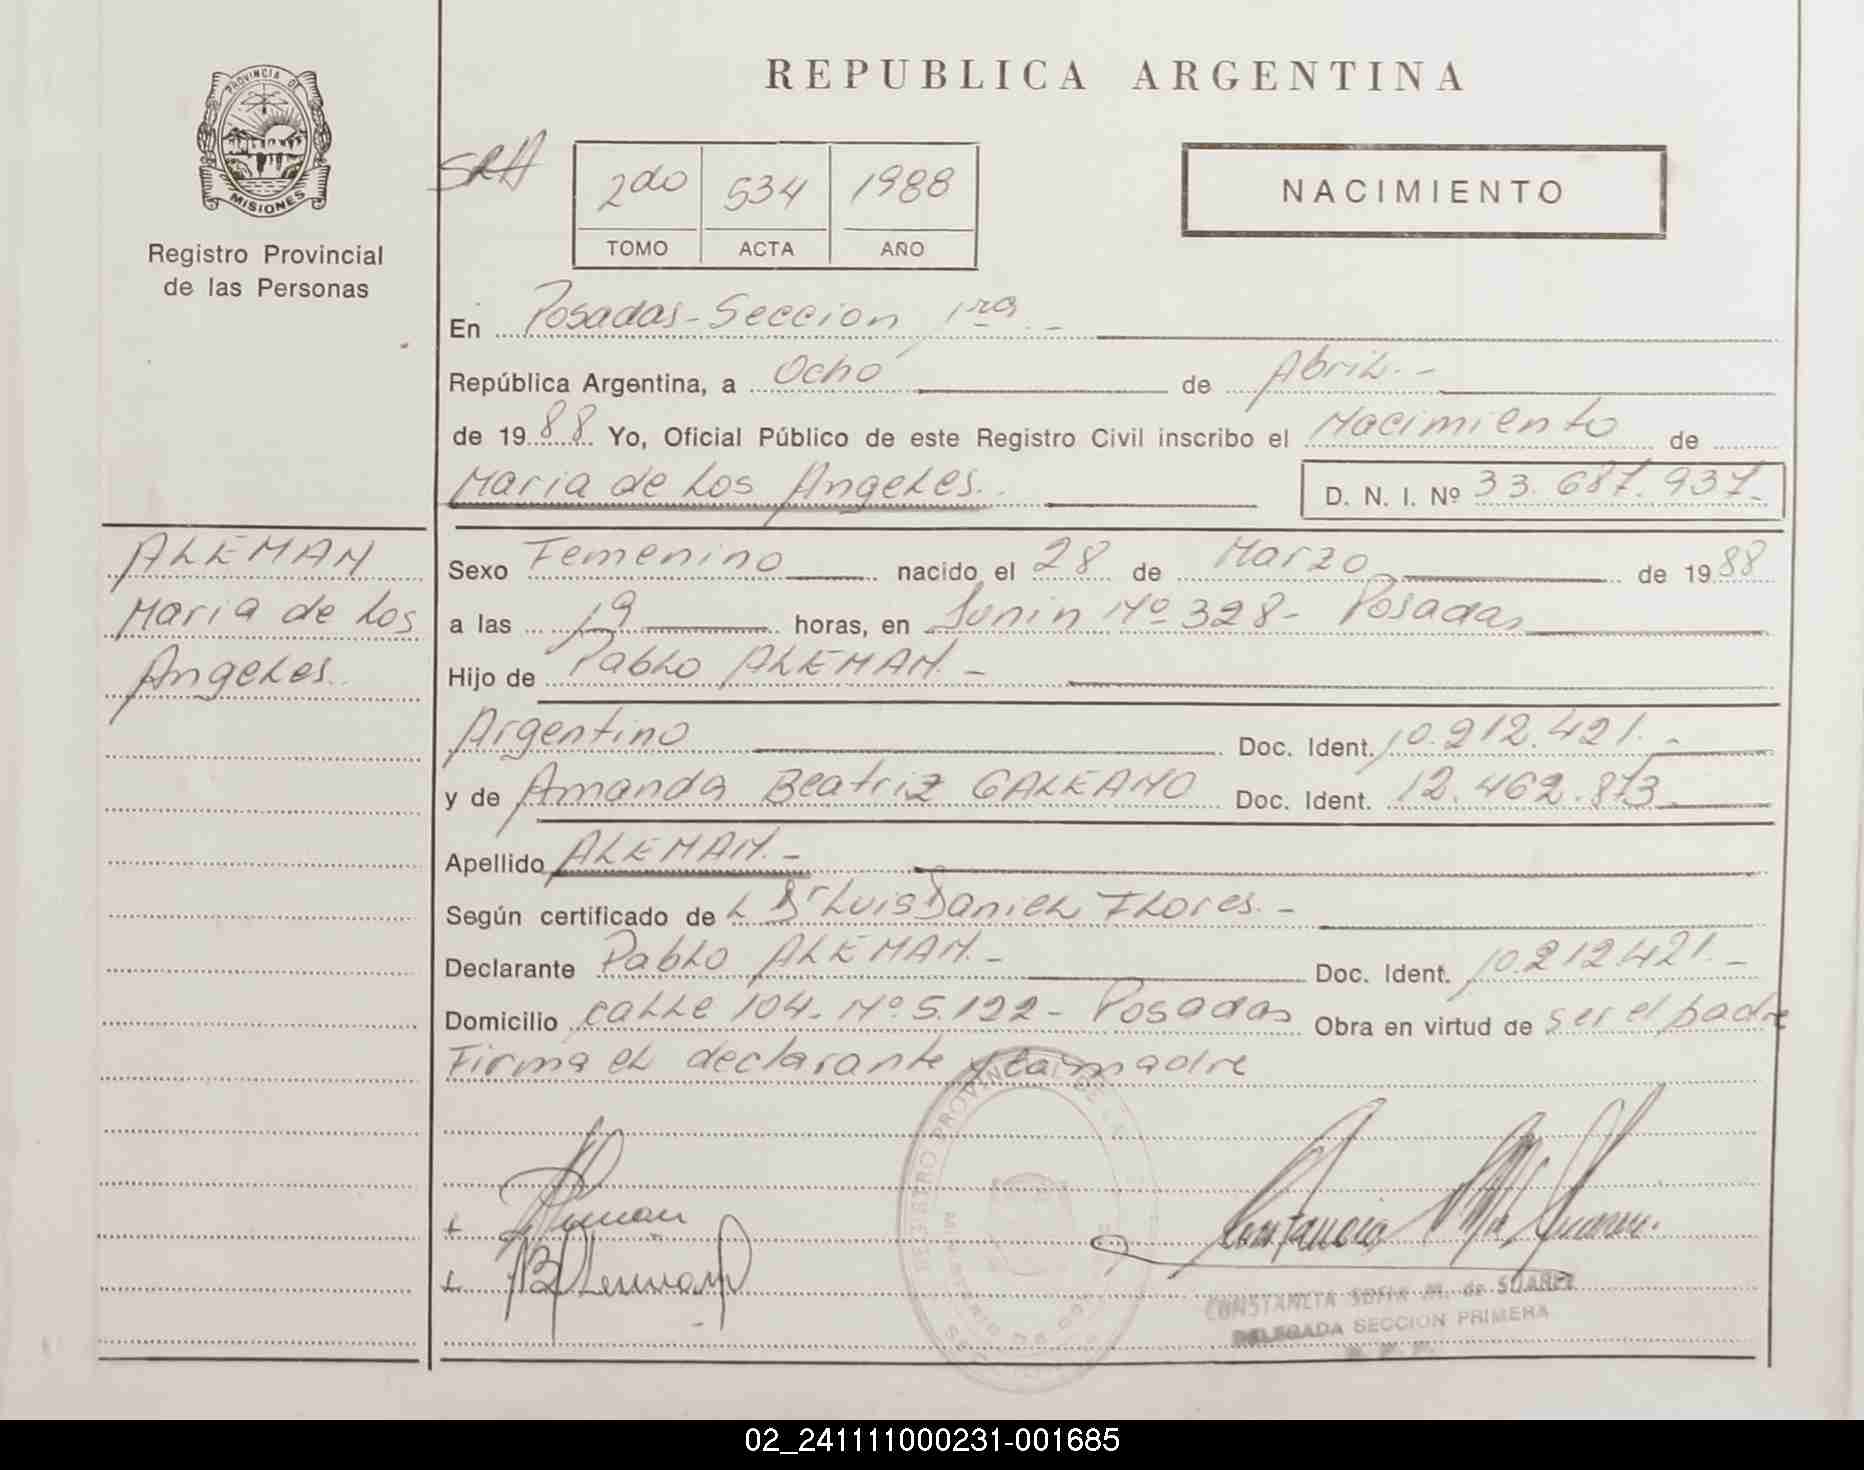 PROVINCIA DE
MISIONES
Registro Provincial
de las Personas
REPUBLICA ARGENTINA
SRA
2do 534 1988
TOMO ACTA AÑO
NACIMIENTO
En Posadas-Seccion 1ra.-
República Argentina, a Ocho de Abril.-
de 1988. Yo, Oficial Público de este Registro Civil inscribo el Nacimiento de
Maria de Los Angeles. D. N. I. Nº 33.687.937.
ALEMAN
Maria de Los
Angeles.
Sexo Femenino nacido el 28 de Marzo de 1988
a las 19 horas, en Junin Nº 328- Posadas
Hijo de Pablo ALEMAN.-
Argentino Doc. Ident. 10.212.421.-
y de Amanda Beatriz GALEANO Doc. Ident. 12.462.873.
Apellido ALEMAN.-
Según certificado de L Dr Luis Daniel Flores.-
Declarante Pablo ALEMAN.- Doc. Ident. 10.212.421.-
Domicilio calle 104- Nº 5.122- Posadas Obra en virtud de ser el padre
Firma el declarante y la madre
REGISTRO PROVINCIAL DE
MINISTERIO DE
+ Aleman
+
Constancia M de Suarez
CONSTANCIA SOFIA M. de SUAREZ
DELEGADA SECCION PRIMERA
02_241111000231-001685